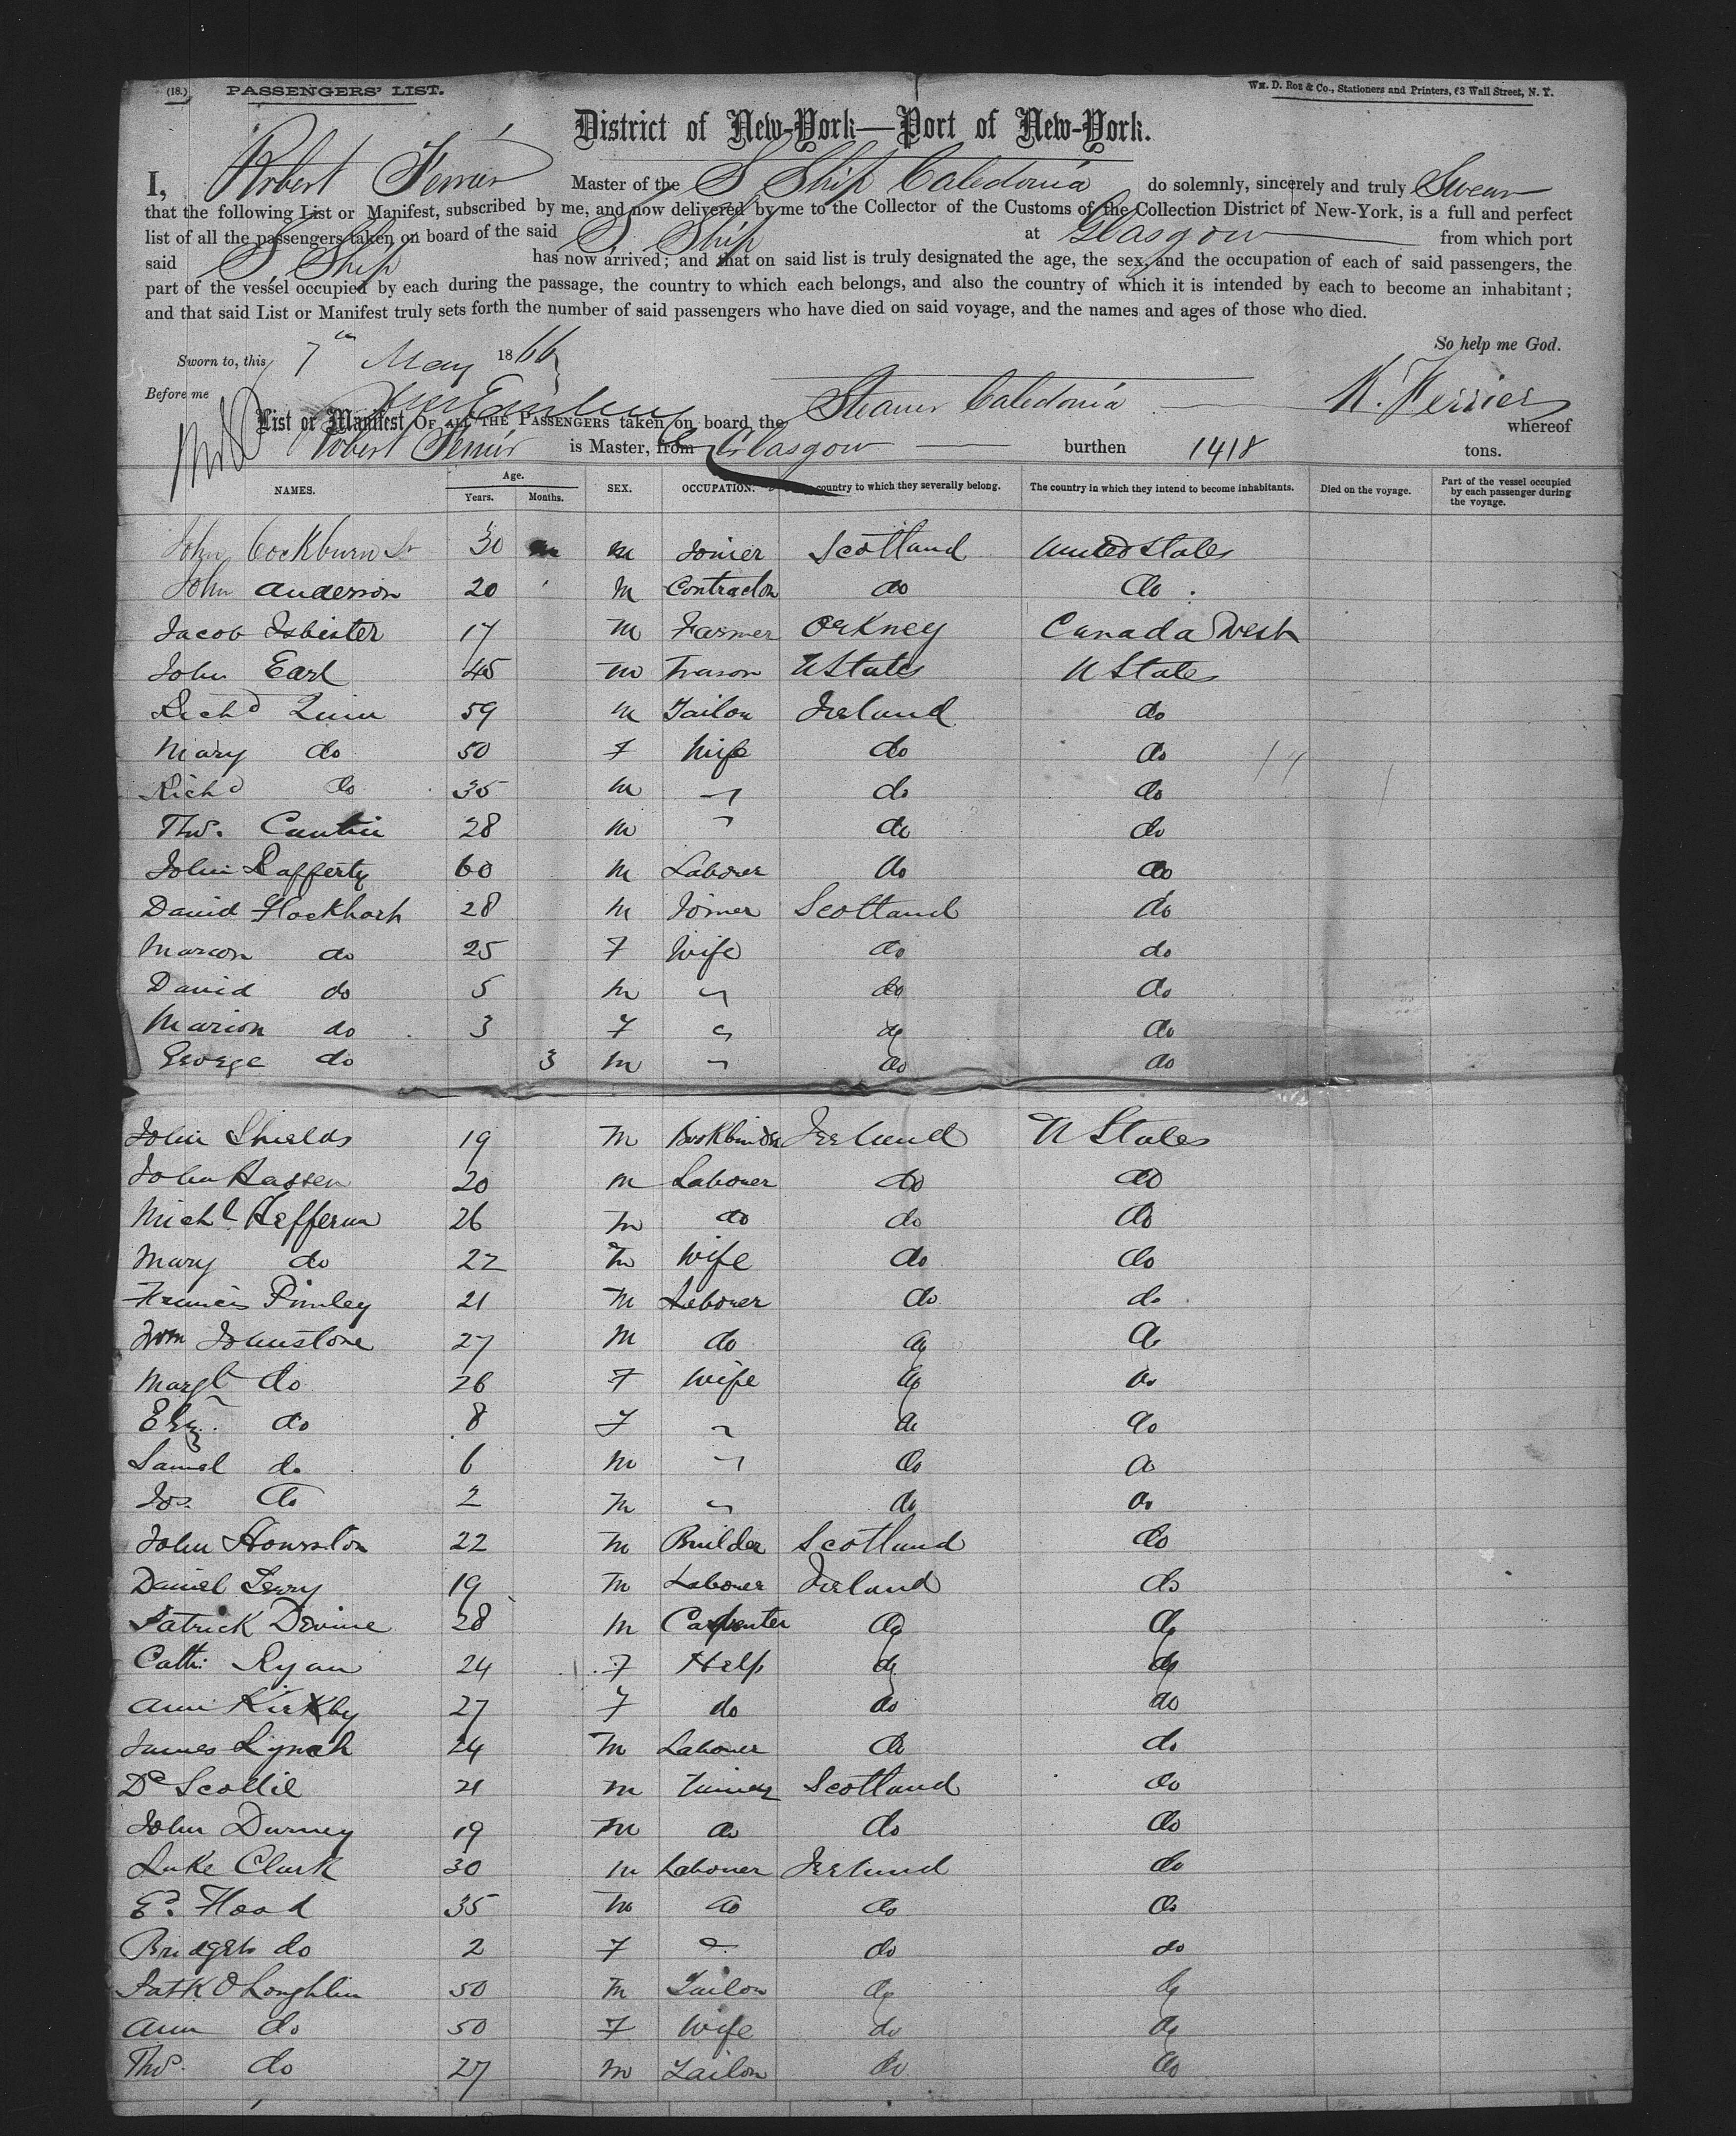 (18.) PASSENGERS' LIST.
Wm. D. Roe & Co., Stationers and Printers, 63 Wall Street, N. Y.
District of New-York—Port of New-York.
I, Robert Ferrier Master of the S Ship Caledonia do solemnly, sincerely and truly Swear
that the following List or Manifest, subscribed by me, and now delivered by me to the Collector of the Customs of the Collection District of New-York, is a full and perfect
list of all the passengers taken on board of the said S. Ship at Glasgow from which port
said S Ship has now arrived; and that on said list is truly designated the age, the sex, and the occupation of each of said passengers, the
part of the vessel occupied by each during the passage, the country to which each belongs, and also the country of which it is intended by each to become an inhabitant;
and that said List or Manifest truly sets forth the number of said passengers who have died on said voyage, and the names and ages of those who died.
So help me God.
Sworn to, this 7th May 1866
Before me
R. Ferrier
List or Manifest OF ALL THE PASSENGERS taken on board the Steamer Caledonia whereof
Robert Ferrier is Master, from Glasgow burthen 1418 tons.
NAMES. Age. Years. Months. SEX. OCCUPATION. country to which they severally belong. The country in which they intend to become inhabitants. Died on the voyage. Part of the vessel occupied by each passenger during the voyage.
John Cockburn Sr 30 m Joiner Scotland United States
John Anderson 20 M Contractor do do
Jacob Isbister 17 m Farmer Orkney Canada West
John Earl 45 m U States U States
Richd Quin 59 M Tailor Ireland do
Mary do 50 F Wife do do
Richd do 35 M " do do
Thos. 28 m " do do
John Rafferty 60 M Laborer do do
David Flockhart 28 M Joiner Scotland do
Marion do 25 F Wife do do
David do 5 M " do do
Marion do 3 F " do do
George do 3 m " do do
John Shields 19 M Bookbinder Ireland U States
John Hassen 20 m Laborer do do
Michl Heffernan 26 m do do do
Mary do 22 m Wife do do
Francis 21 M Laborer do do
Wm Johnstone 27 M do do do
Margt do 26 F Wife do do
Eliz. do 8 F " do do
Samel do 6 m " do do
Jos. do 2 m " do do
John Hourston 22 m Builder Scotland do
Daniel 19 m Laborer Ireland do
Patrick Devine 28 M Carpenter do do
Cath. Ryan 24 F Help do do
Ann Kirkby 27 F do do do
James Lynch 24 m Laborer do do
Dd Scollie 21 m Scotland do
John Durney 19 m do do do
Luke Clark 30 m Laborer Ireland do
Ed. Flood 35 m do do do
Bridget do 2 F " do do
Patk O'Loughlin 50 m Tailor do do
Ann do 50 F Wife do do
Thos. do 27 m Tailor do do